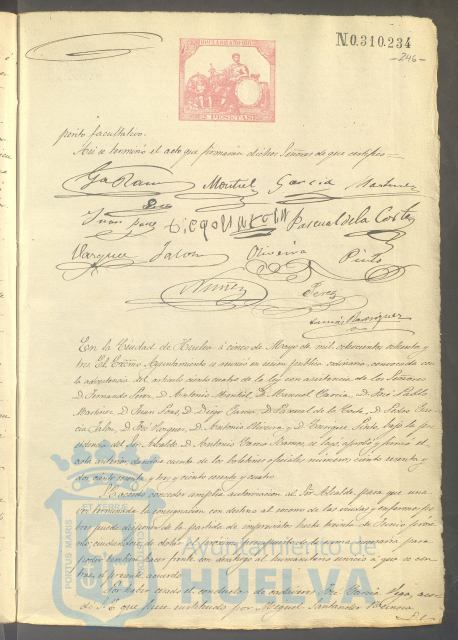 N.0.310.234
-246-
2 PESETAS
perito facultativo.
Asi se terminó el acto que firmarán dichos Señores de que certifico=
Garcia Martinez
Montiel
Juan
Pascual de la Corte
Vazquez Jalon Oliveira Pinto
Nuñez Perez
Tomás Rodriguez
En la Ciudad de Huelva á cinco de Mayo de mil ochocientos ochenta y
tres. El Excmo Ayuntamiento se reunió en sesion publica ordinaria, convocada con
la advertencia del articulo ciento cuatro de la ley con asistencia de los Señores
D. Fernando Perez, D. Antonio Montiel, D. Manuel Garcia, D. José Pablo
Martinez, D. Juan D. Diego Garcia, D. Pascual de la Corte, D. Pedro
Jalon, D. José Vazquez, D. Antonio Oliveira, y D. Enrique Pinto bajo la pre-
sidencia del Sor. Alcalde D. Antonio Garcia Ramos, se leyó, aprobó y firmó el
acta anterior, dandose cuenta de los boletines oficiales números, ciento
dos, ciento y tres y ciento y cuatro.
Se acordó conceder amplia autorizacion al Sor Alcalde para que una
vez terminada la consignacion con destino al socorro de las viudas y enfermos po-
bres pueda disponer de la partida de imprevistos hasta treinta de Junio proxi-
mo cuidandose de dotar el proximo presupuesto de la suma necesaria para
poder tambien hacer frente con desahogo al humanitario servicio á que se con-
trae el presente acuerdo.
Por haber cesado el conductor de cadaveres José Garcia Vega, acor-
dó S.E. que fuese sustituido por Miguel Santander
PORTUS MARIS
Ayuntamiento de
HUELVA